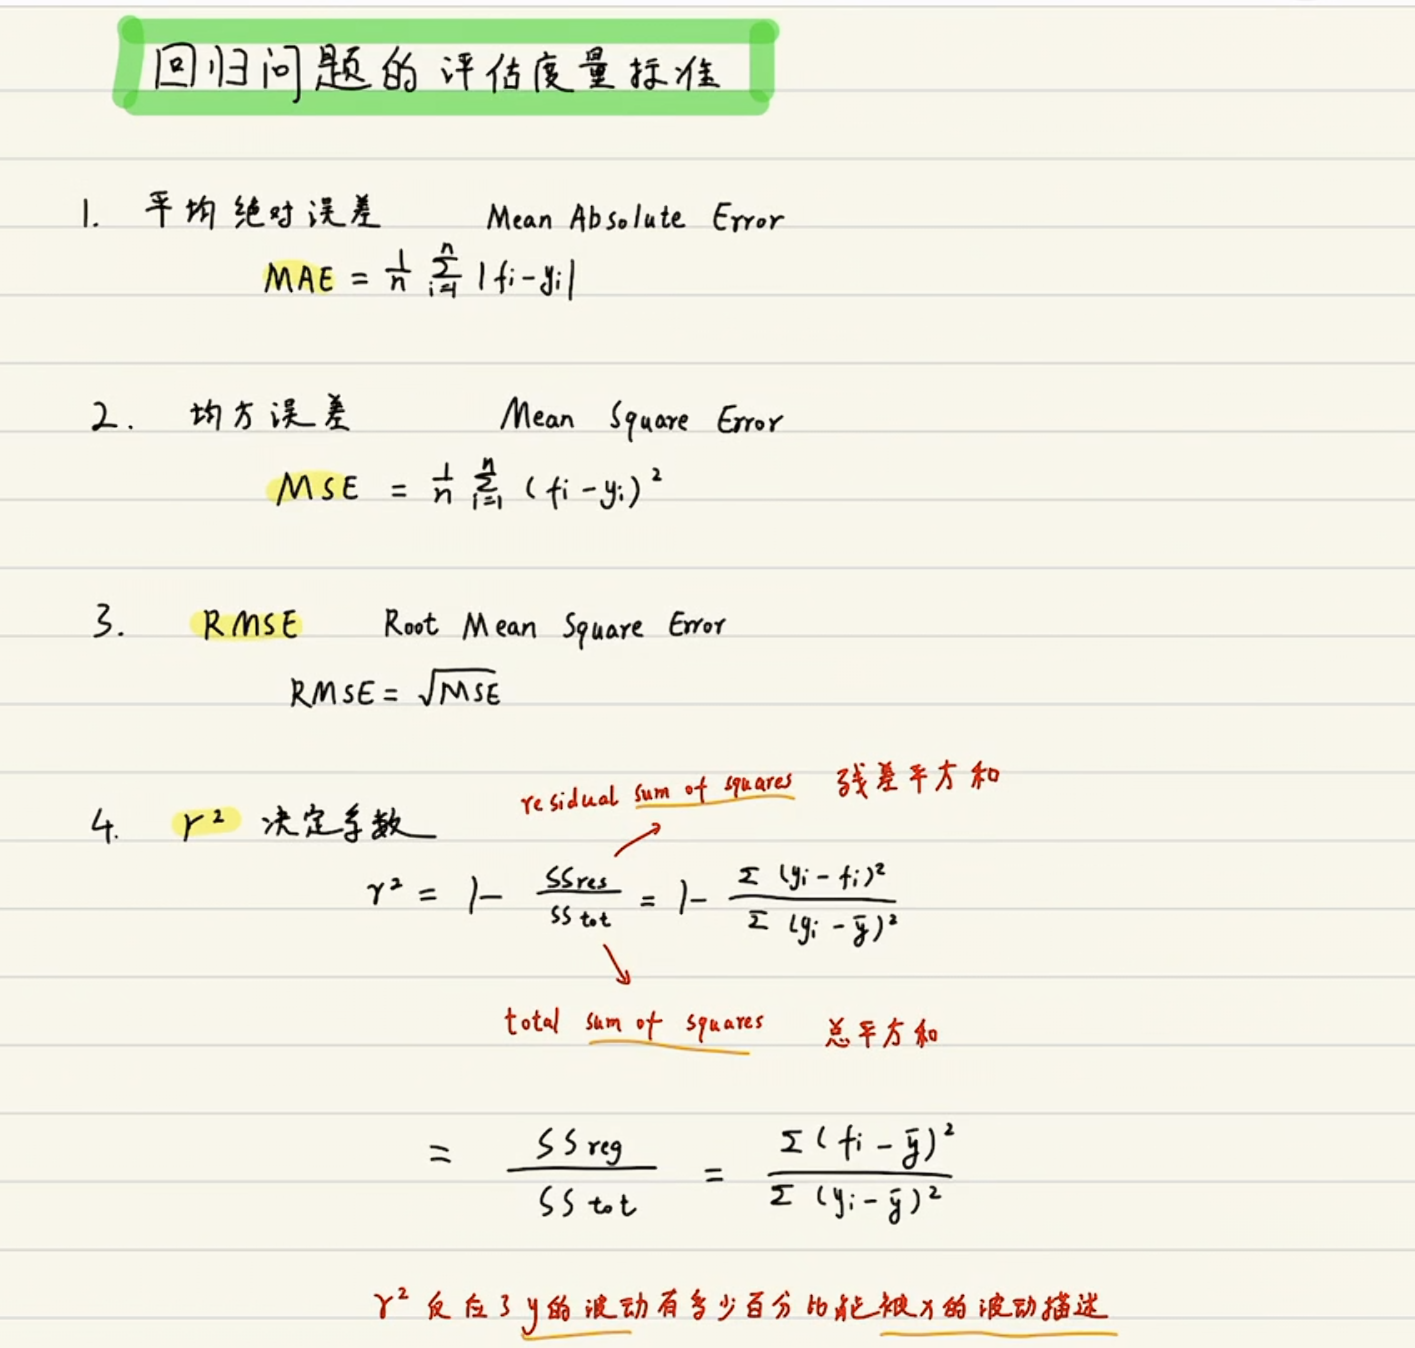 回归问题的评估度量标准
1. 平均绝对误差 Mean Absolute Error
MAE = 1/n Σ_{i=1}^{n} |fi - yi|
2. 均方误差 Mean Square Error
MSE = 1/n Σ_{i=1}^{n} (fi - yi)²
3. RMSE Root Mean Square Error
RMSE = √MSE
residual sum of squares 残差平方和
4. r² 决定系数
r² = 1 - SSres/SStot = 1 - Σ(yi - fi)²/Σ(yi - ȳ)²
total sum of squares 总平方和
= SSreg/SStot = Σ(fi - ȳ)²/Σ(yi - ȳ)²
r² 反应了y的波动有多少百分比能被x的波动描述